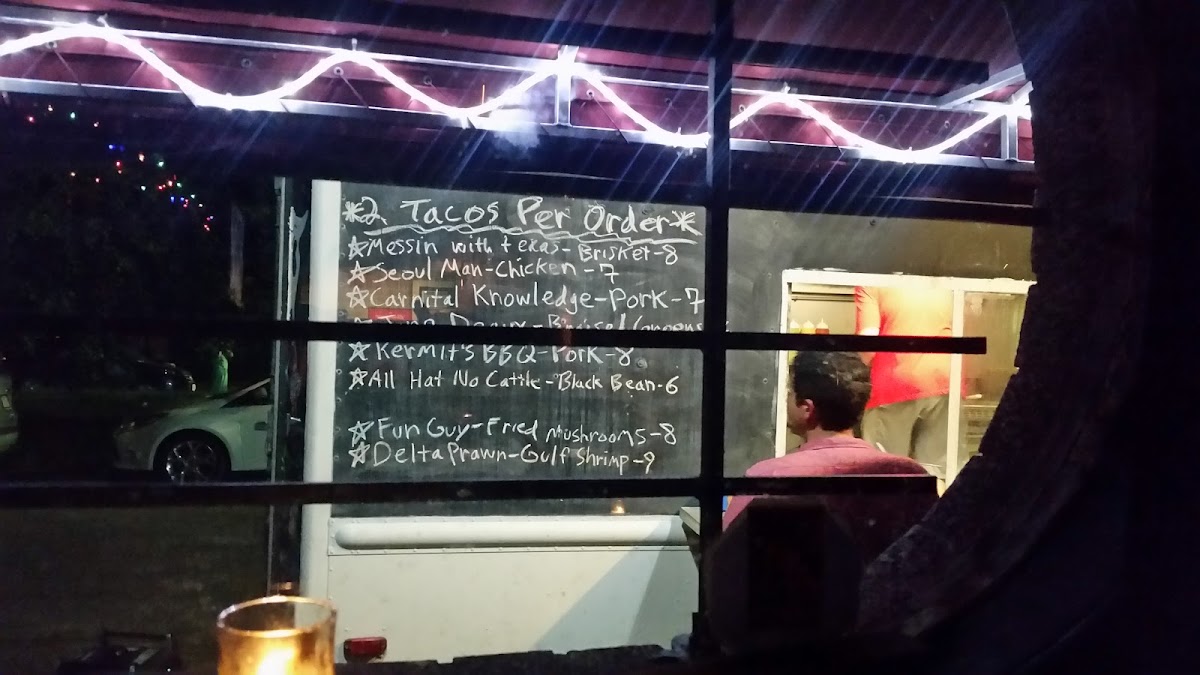 *2 Tacos Per Order*
☆Messin with texas-Brisket-8
☆Seoul Man-Chicken-7
☆Carnital Knowledge-Pork-7
☆Kermit's BBQ-Pork-8
☆All Hat No Cattle-Black Bean-6
☆Fun Guy-Fried Mushrooms-8
☆Delta Prawn-Gulf Shrimp-9